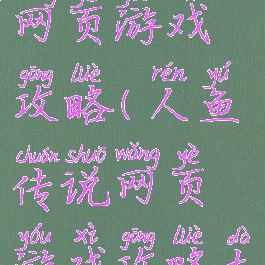 网页游戏
gōng lüè rén yú
攻略(人鱼
chuán shuō wǎng yè
传说网页
yóu xì gōng lüè dà